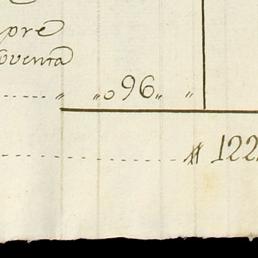 pre
oventa
„ „o96„ „
122